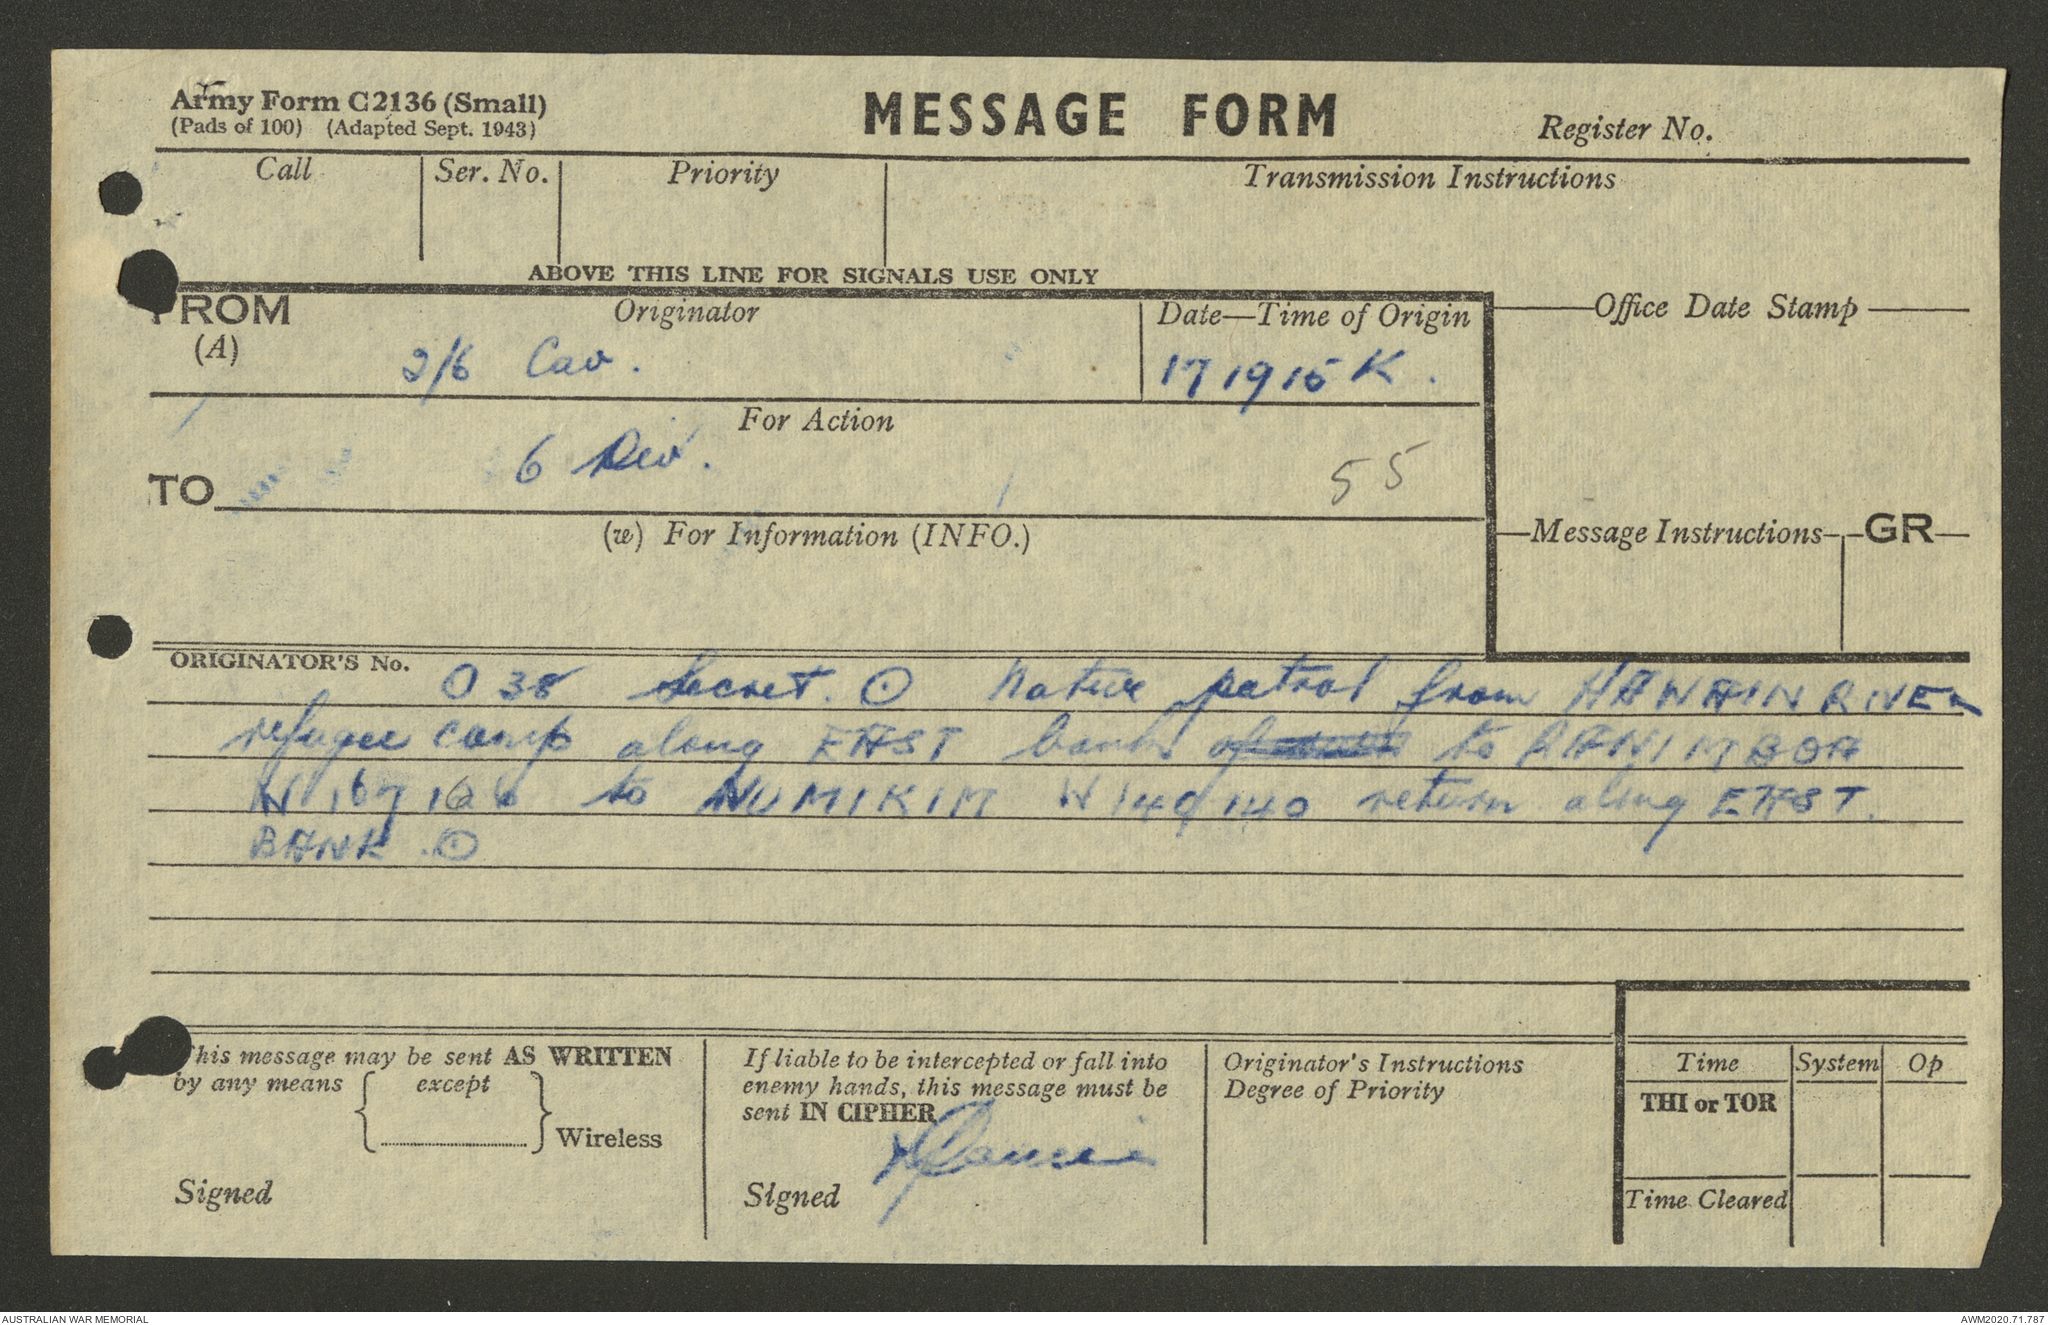 Army Form C2136 (Small)
(Pads of 100) (Adapted Sept. 1943)
MESSAGE FORM
Register No.
Call
Ser. No.
Priority
Transmission Instructions
ABOVE THIS LINE FOR SIGNALS USE ONLY
FROM
(A)
Originator
2/6 Cav.
Date—Time of Origin
171915K.
Office Date Stamp
For Action
TO
6 Div.
55
(w) For Information (INFO.)
Message Instructions
GR
ORIGINATOR'S No.
O 38 Secret. ⊙ Native patrol from HAWAIN RIVER
refugee camp along EAST bank to
to NUMIKIM W 149140 return along EAST.
BANK. ⊙
This message may be sent AS WRITTEN
by any means { except } Wireless
Signed
If liable to be intercepted or fall into
enemy hands, this message must be
sent IN CIPHER
Signed
Originator's Instructions
Degree of Priority
Time System Op
THI or TOR
Time Cleared
AUSTRALIAN WAR MEMORIAL
AWM2020.71.787